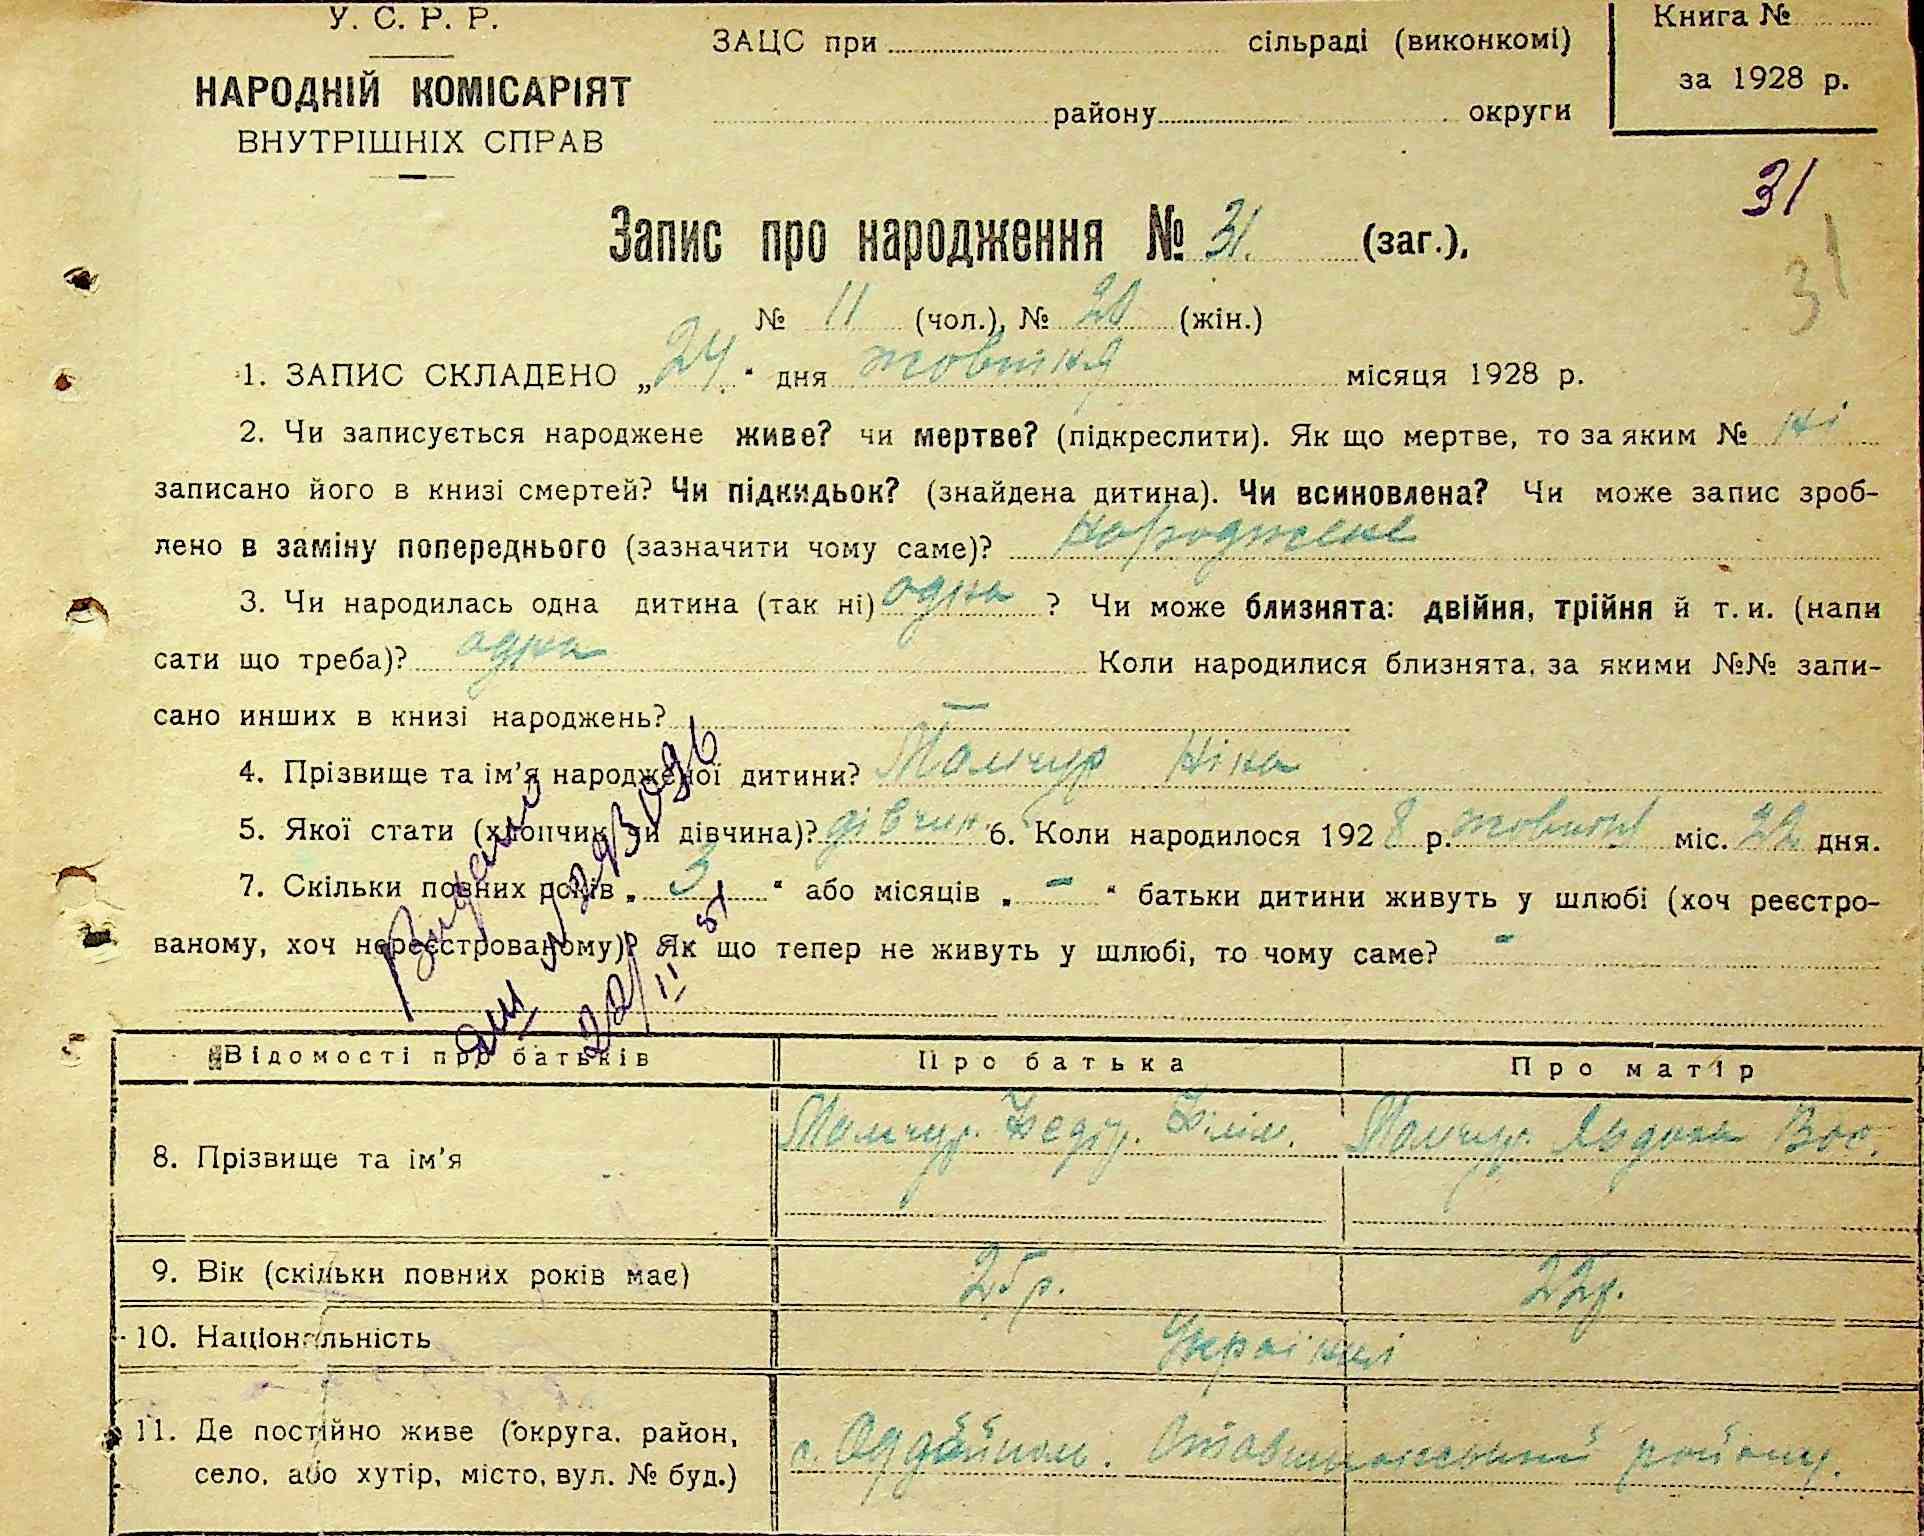 У. С. Р. Р.
НАРОДНІЙ КОМІСАРІЯТ
ВНУТРІШНІХ СПРАВ
ЗАЦС при сільраді (виконкомі)
району округи
Книга №
за 1928 р.
31
31
Запис про народження № 31. (заг.),
№ 11 (чол.), № 20 (жін.)
1. ЗАПИС СКЛАДЕНО „24“ дня жовтня місяця 1928 р.
2. Чи записується народжене живе? чи мертве? (підкреслити). Як що мертве, то за яким № ні
записано його в книзі смертей? Чи підкидьок? (знайдена дитина). Чи всиновлена? Чи може запис зроб-
лено в заміну попереднього (зазначити чому саме)? народжене
3. Чи народилась одна дитина (так ні) одна ? Чи може близнята: двійня, трійня й т. и. (напи
сати що треба)? одна Коли народилися близнята, за якими №№ запи-
сано инших в книзі народжень? —
4. Прізвище та ім'я народженої дитини? Мамчур Ніна
5. Якої стати (хлопчик чи дівчина)? дівчин. 6. Коли народилося 1928 р. жовтня міс. 22 дня.
7. Скільки повних років „ 3 “ або місяців „ - “ батьки дитини живуть у шлюбі (хоч реєстро-
ваному, хоч нереєстрованому)? Як що тепер не живуть у шлюбі, то чому саме? -
Видано
22/II 51
Відомості про батьків Про батька Про матір
8. Прізвище та ім'я Мамчур. Федір. Філім. Мамчур. Явдоха Вас.
9. Вік (скільки повних років має) 25 р. 22 р.
10. Національність Українці
11. Де постійно живе (округа, район, с. Оддайпіль. Ставищанський району.
село, або хутір, місто, вул. № буд.)